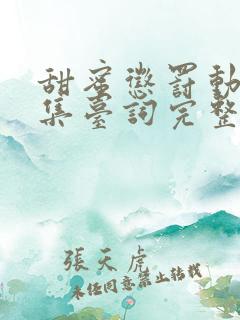 甜蜜懲罰動
集臺詞完整
張天虎
未經同意禁止轉載